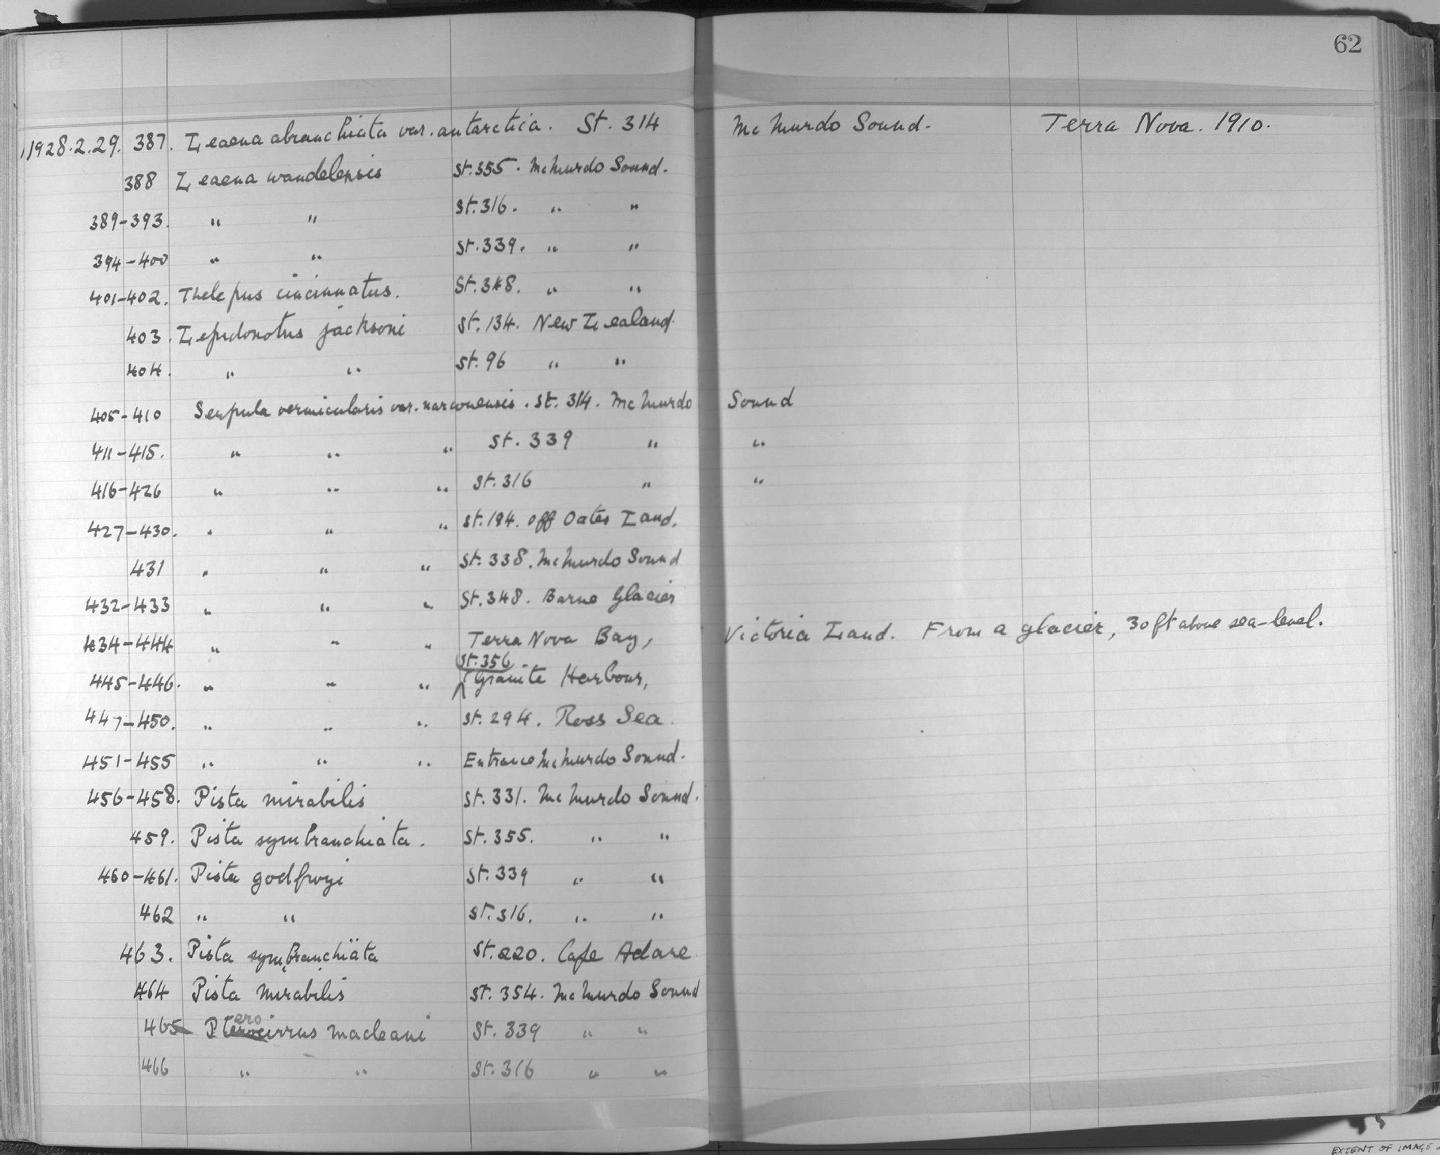 62
1928.2.29. 387. Leaena abranchiata var. antarctica. St. 314 McMurdo Sound. Terra Nova. 1910.
388 Leaena wandelensis St. 355. McMurdo Sound.
389-393. " " St. 316. " "
394-400 " " St. 339. " "
401-402. Thelepus cincinnatus. St. 348. " "
403. Lepidonotus jacksoni St. 134. New Zealand.
404. " " St. 96 " "
405-410 Serpula vermicularis var. narconensis. St. 314. McMurdo Sound
411-415. " " " St. 339 " "
416-426 " " " St. 316 " "
427-430. " " " St. 194. off Oates Land.
431 " " " St. 338. McMurdo Sound
432-433 " " " St. 348. Barne Glacier
434-444 " " " Terra Nova Bay, Victoria Land. From a glacier, 30 ft above sea-level.
St. 356
445-446. " " " Granite Harbour,
447-450. " " " St. 294. Ross Sea.
451-455 " " " Entrance McMurdo Sound.
456-458. Pista mirabilis St. 331. McMurdo Sound.
459. Pista symbranchiata. St. 355. " "
460-461. Pista godfroyi St. 339 " "
462 " " St. 316. " "
463. Pista symbranchiata St. 220. Cape Adare
464 Pista mirabilis St. 354. McMurdo Sound
465 Pterocirrus macleani St. 339 " "
466 " " St. 316 " "
EXTENT OF IMAGE